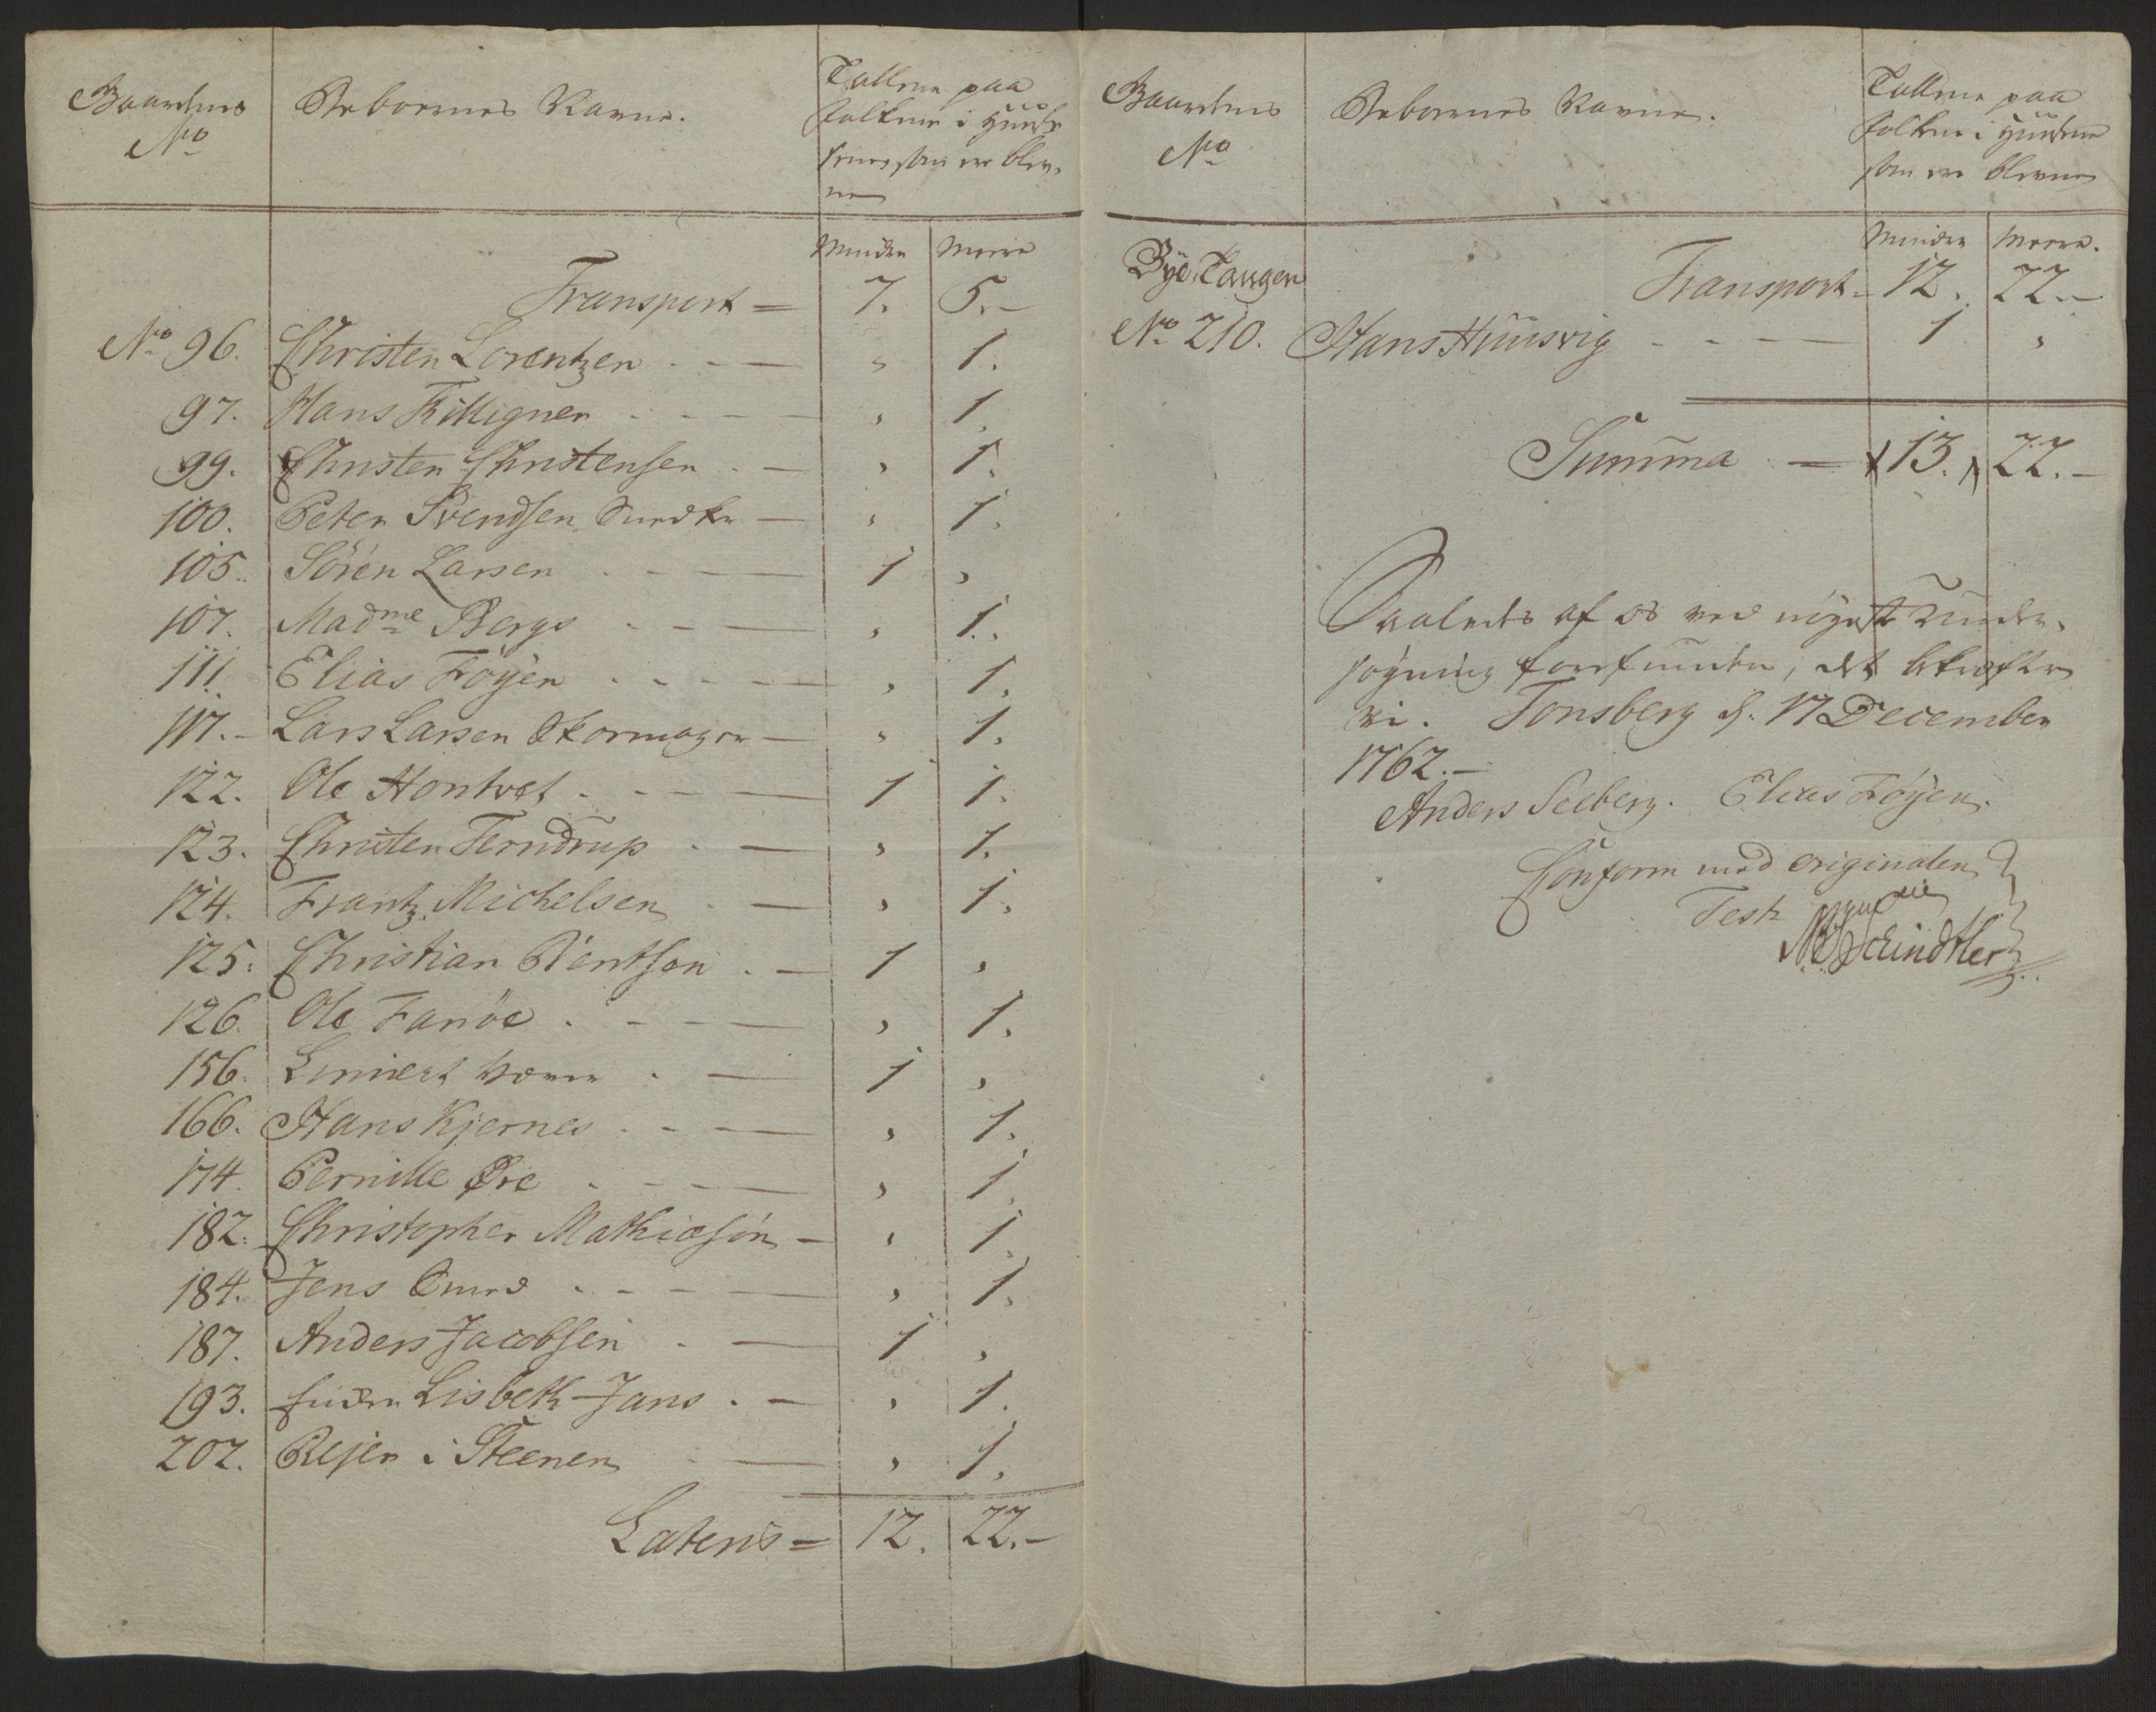 Gaardens No | Beboernes Navne. | Tallene paa
Folkene i Huuse
sene som ere blev,
ne
Mindre | Meere
Transport = 7. 5.-
No 96. Christen Lorentzen . - — „ 1.
97. Hans Trilligner . - - — „ 1.
99. Christen Christensen . — „ 1.
100. Peter Svendsen Snedker — „ 1.
105. Sören Larsen . - — 1 „
107. Madme Bergs . - — „ 1.
111. Elias Föyen . - - — „ 1.
117.- Lars Larsen Skoemager — „ 1.
122. Ole Hontvet . - - — 1 1.
123. Christen Terndrup . — „ 1.
124. Frantz Michelsen . — „ 1.
125. Christian Bentsen . — 1 „
126. Ole Fanöe . - - — „ 1.
156. Linnert . — 1 „
166. Hans Kjernes . - - — „ 1.
174. Pernille Øre . - - — „ 1.
182. Christopher Mathiesön — „ 1.
184. Jens Smed . - - — „ 1.
187. Anders Jacobsen . — 1 „
193. Enken Lisbeth Jans . — „ 1.
202. Rejer i Steenen . — „ 1.
Lateris = 12. 22.-
Gaardens No | Beboernes Navne. | Tallene paa
Folkene i Huusene
som ere blevne
Mindre | Meere.
Bye Tangen
Transport = 12. 22.-
No 210. Hans Huusvig - - - — 1 „
Summa — 13. 22.-
Saaledes af os ved nöyeste Under,
søgning forefunden, det bekræfter
vi. Tonsberg d. 17 December
1762.-
Anders Seeberg. Elias Föyen.
Conform med originalen
Test.
Schindtler